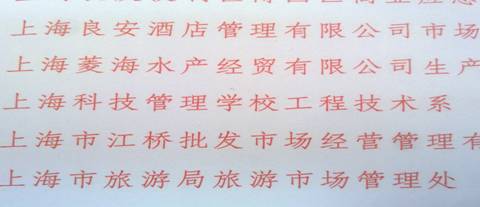 上海良安酒店管理有限公司市场
上海菱海水产经贸有限公司生产
上海科技管理学校工程技术系
上海市江桥批发市场经营管理有
上海市旅游局旅游市场管理处